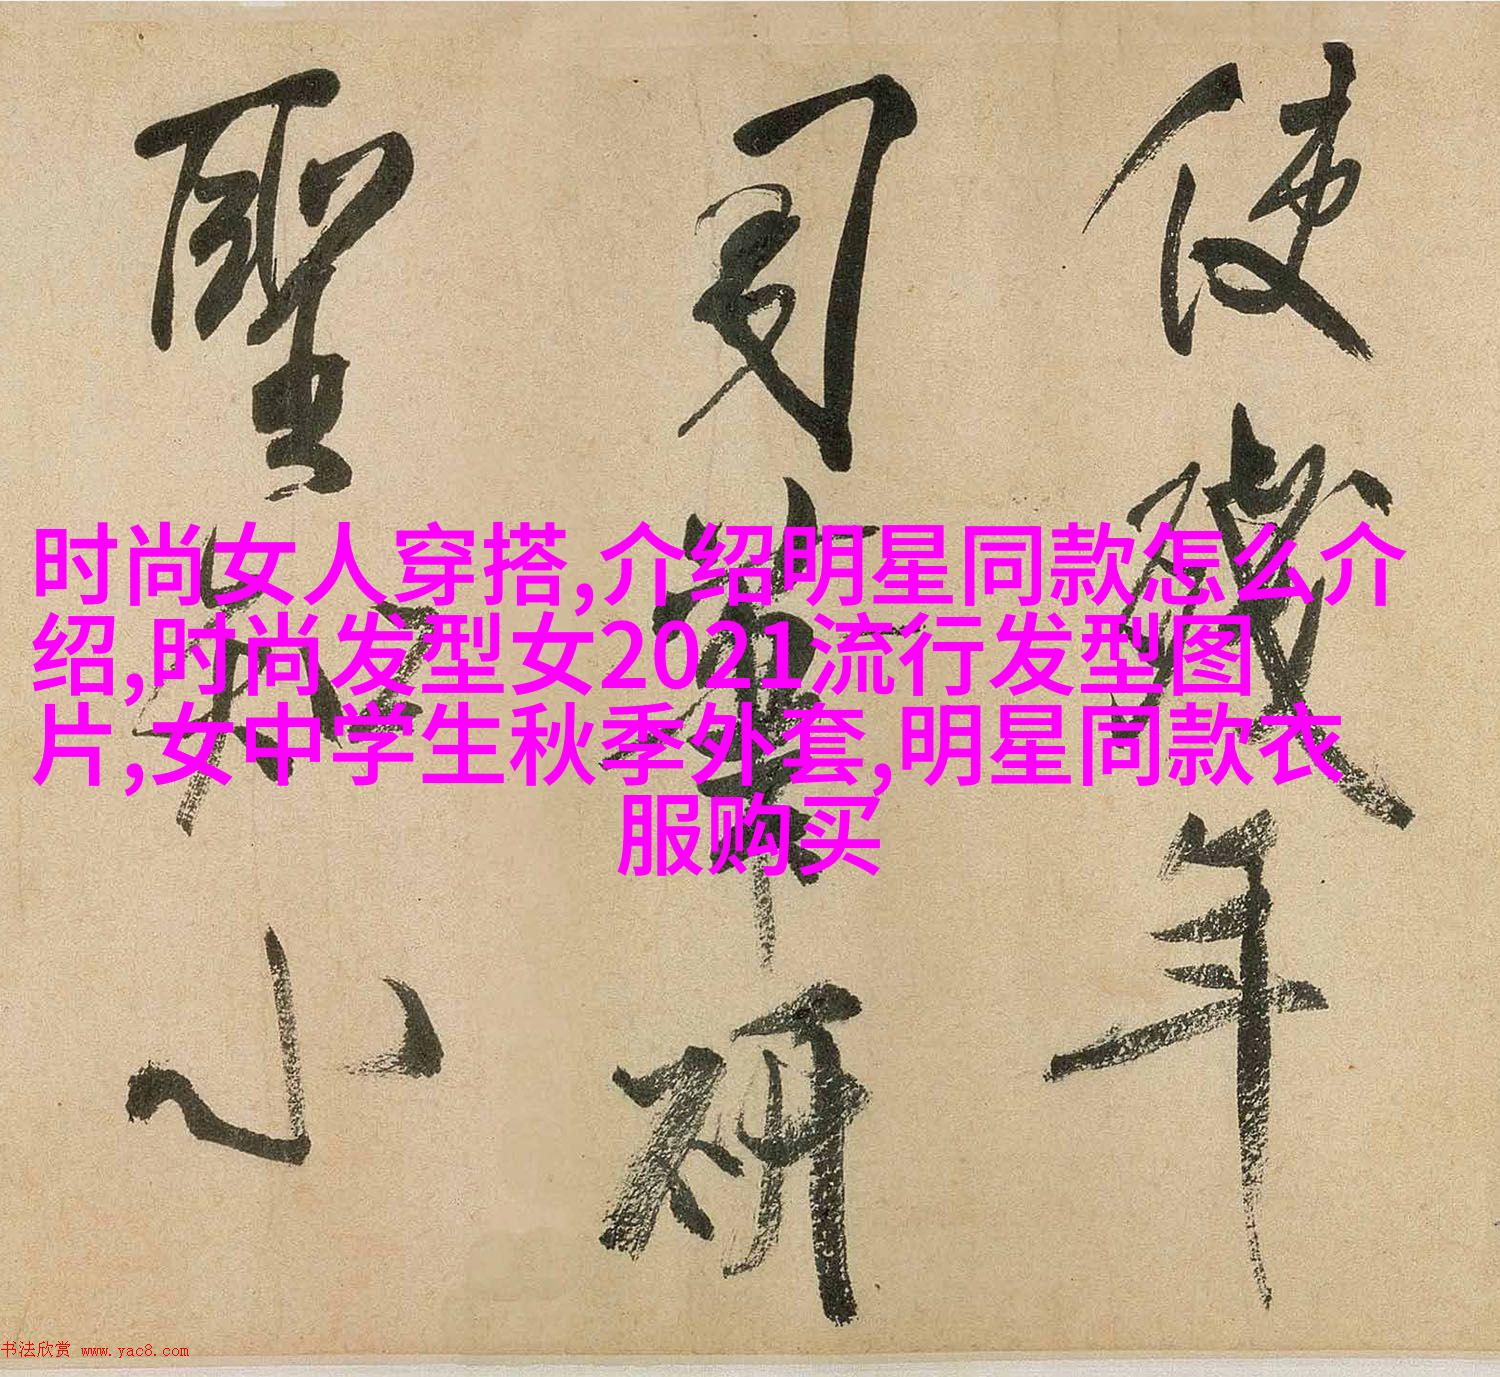 使 年
研
聖知小
时尚女人穿搭,介绍明星同款怎么介
绍,时尚发型女2021流行发型图
片,女中学生秋季外套,明星同款衣
服购买
书法欣赏 www.yac8.com